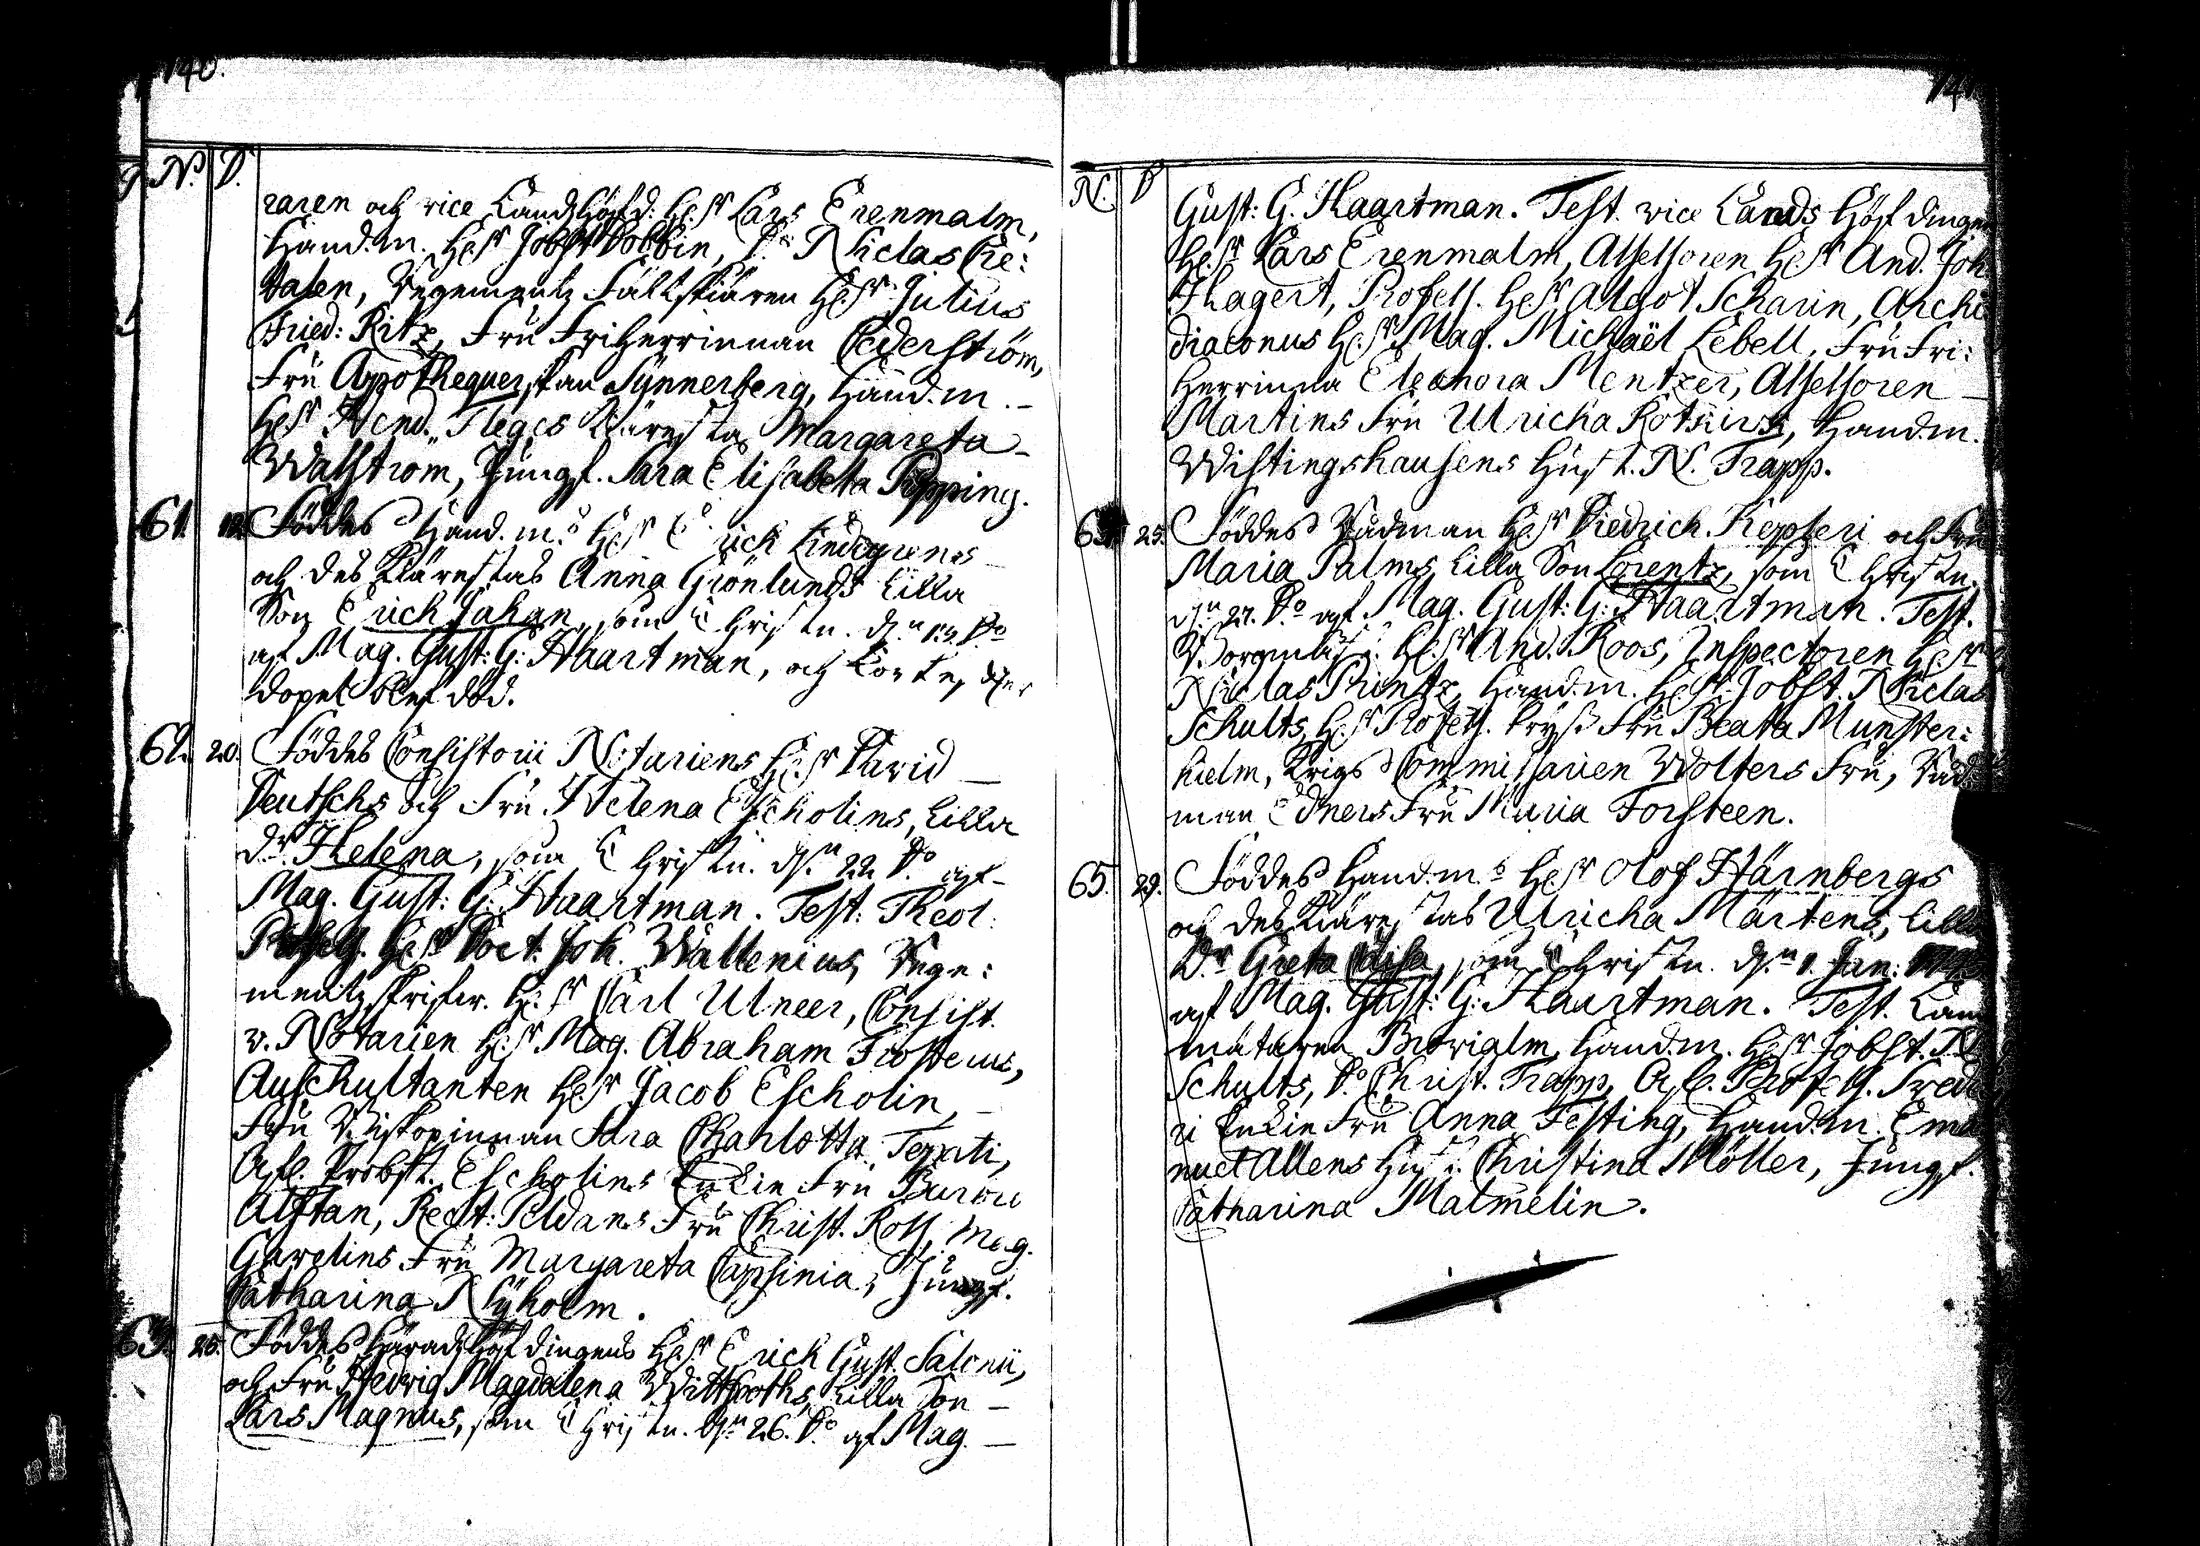 140.
N. D.
raren och vice Landshöfd: H:r Lars Erenmalm,
Hand.m. H:r Jobst Dobbin, D:o Niclas Cre:
talen, Regementz Fältskiären H:r Julius
Fried: Ritz, Fru Friherrinnan Cederström,
Fru Apothequerskan Synnerberg, Hand.m. –
H:r Hend. Fleges Kiäresta Margareta
Wallstrom, Jungf. Sara Elisabeta Pipping.
61. 12. Föddes Hand.m:s H:r Erick Lindgrens
och des Kiärestas Anna Grönlunds Lilla
Son Erick Johan, som Christn. d:n 13 D:o
af Mag. Gust: G: Haartman, och kort efter
dopet blef död.
62. 20. Föddes Consistorii Notariens H:r David –
Deutschs och Fru Helena Escholins, Lilla
D:r Helena, som Christn. d:n 22 D:o af –
Mag. Gust: G: Haartman. Test: Theol.
Profess. H:r Doct. Joh. Wallenius, Rege:
mentzskrifw. H:r Carl Ulneer, Consist.
v. Notarien H:r Mag. Abraham Frosterus,
Auschultanten H:r Jacob Escholin, –
Fru Biskopinnan Sara Charlotta Terpati,
Afl. Probst. Escholins Enkia Fru
Alftan, Rect: Pldans Fru Christ. Ross, Mag.
Garelins Fru Margareta Capsinia, Jungf.
Catharina Nyholm.
63. 25. Föddes Häradshöfdingens H:r Erick Gust. Salonii,
och Fru Hedvig Magdalena Wittfooths, Lilla Son –
Lars Magnus, som Christn. d:n 26. D:o af Mag. –
141
N. D
Gust: G. Haartman. Test. vice Lands Höfdingen
H:r Lars Erenmalm, Assessoren H:r And. Joh.
Hagert, Profess. H:r Algot Scharin, Archi
diaconus H:r Mag. Michaël Lebell, Fru Fri:
herrinna Eleonora Mentzer, Assessoren –
Martins Fru Ulricha Rotkirk, Hand.m.
Wistingshausens Hust. N. Trapp.
25. Föddes Rådman H:r Diedrich Kepleri och Fru
Maria Palms Lilla Son Lorentz, som Christn.
d:n 27. D:o af Mag. Gust: G: Haartman. Test.
Borgmäst: H:r And. Roos, Inspectoren H:r
Niclas Printz, Hand.m. H:r Jobst. Niclas
Schults, H:r Profess. Pryss Fru Beata Munster:
hielm, Krigs Commissarien Wolters Fru, Råd
man Edners Fru Maria Forsteen.
65. 29. Föddes Hand.m:s H:r Olof Härnbergs
och des Kiärestas Ulricha Mårtens, Lilla
D:r Greta Caisa, som Christn. d:n 1. Jan:
af Mag. Gust: G: Haartman. Test. Lan
mätaren Brovialm, Hand.m. H:r Jobst. N
Schults, D:o Christ. Trapp, Afl. Profess. Fred
ri Enkia Fru Anna Festing, Hand.m. Ema
nuel Allens Hust: Christina Möller, Jungf.
Catharina Malmelin.